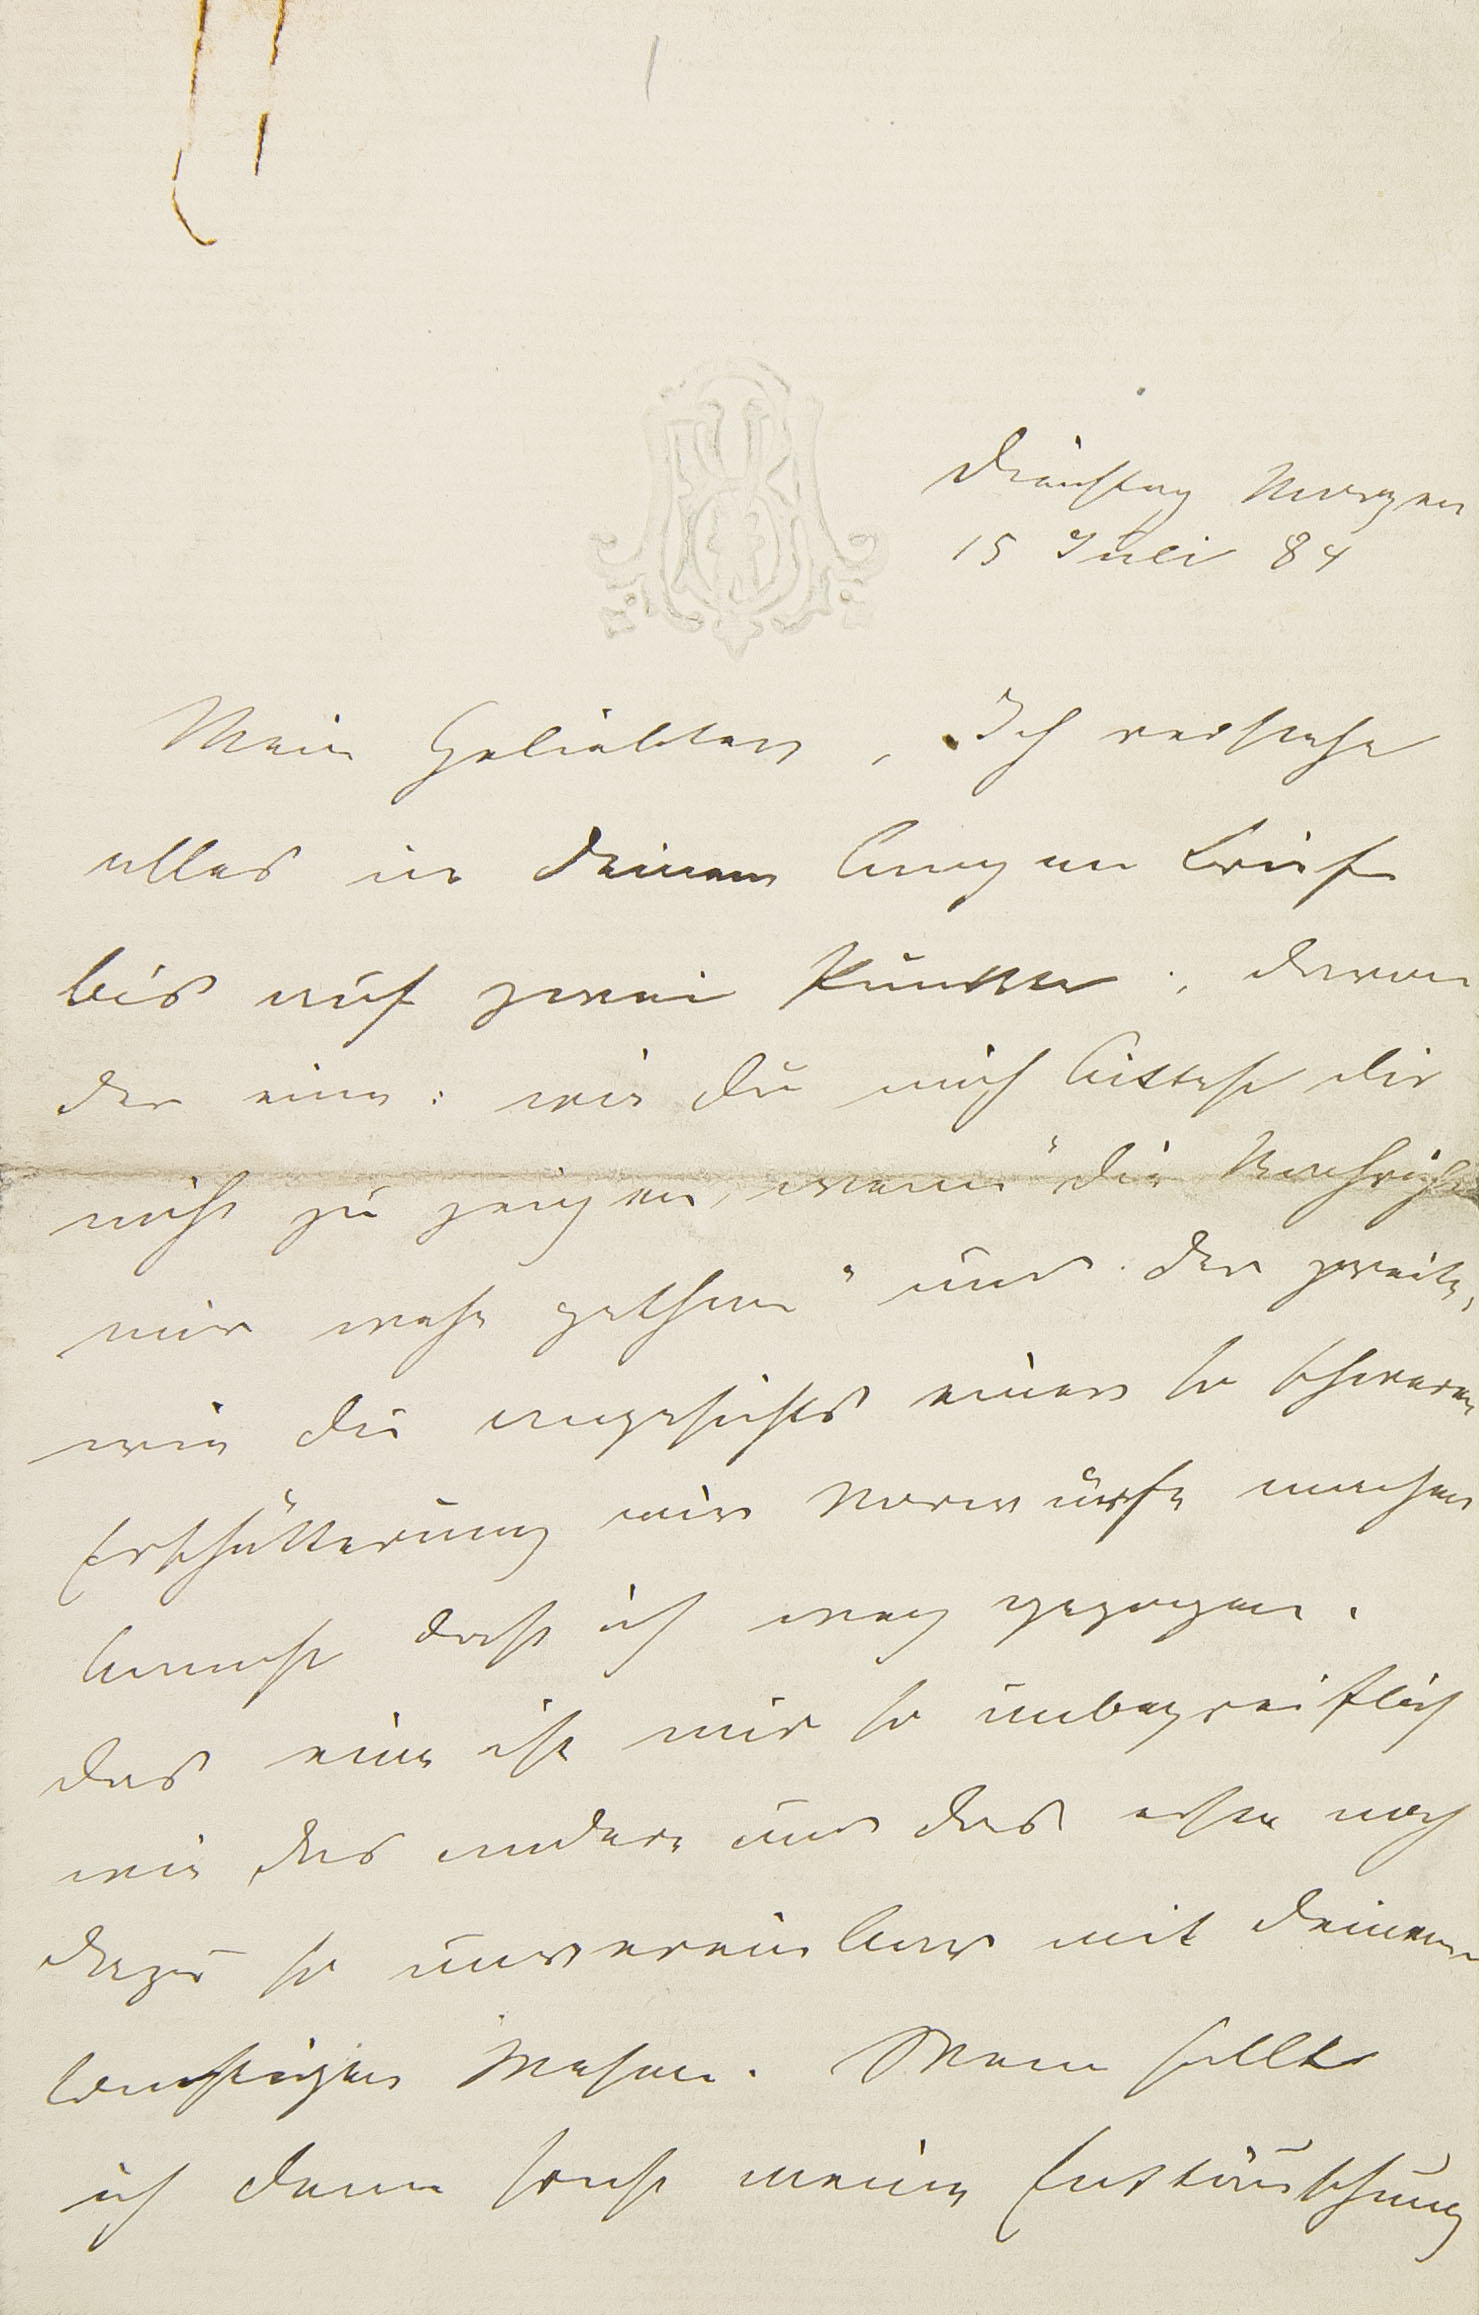 Dienstag Morgen
15 Juli 84
Mein Geliebter, Ich verstehe
alles in Deinem langen Brief
bis auf zwei Punkte; davon
der eine: wie Du mich bittest dir
nicht zu zeigen, wenn "die Nachricht
mir wehe gethan" und der zweite,
wie Du angesichts einer so schweren
Erschütterung mir Vorwürfe machen
kannst daß ich weg gezogen.
Das eine ist mir so unbegreiflich
wie das andere und das erste noch
dazu so unvereinbar mit Deinem
sonstigen Wesen. Wem sollte
ich denn sonst meine Enttäuschung